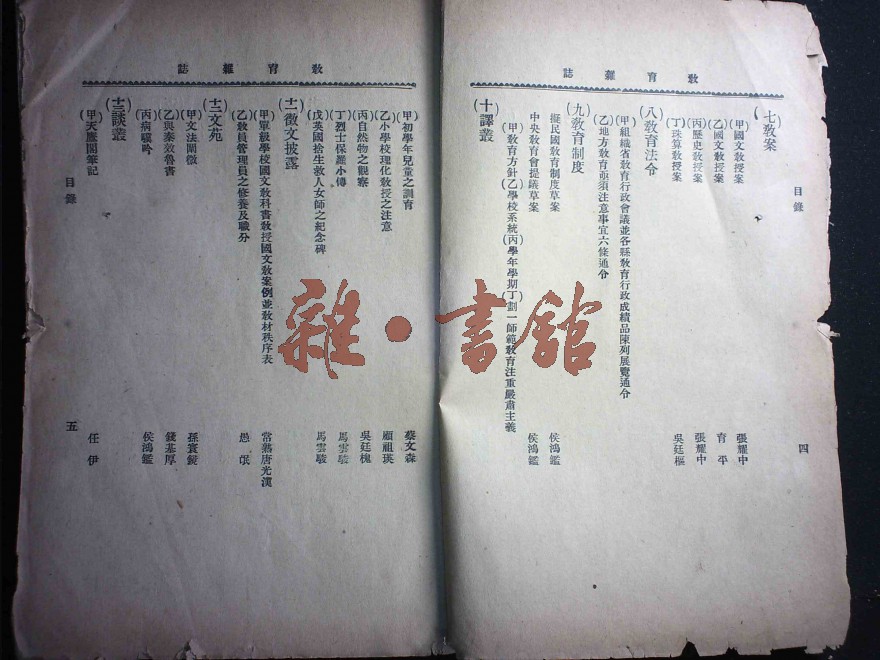 教育雜誌
目錄
四
(七)教案
(甲)國文教授案 張耀中
(乙)國文教授案 育平
(丙)歷史教授案 張耀中
(丁)珠算教授案 吳廷樞
(八)教育法令
(甲)組織省教育行政會議並各縣教育行政成績品陳列展覽通令
(乙)地方教育亟須注意事宜六條通令
(九)教育制度
擬民國教育制度草案 侯鴻鑑
中央教育會提議草案 侯鴻鑑
(甲)教育方針(乙)學校系統(丙)學年學期(丁)劃一師範教育注重嚴肅主義
(十)譯叢
教育雜誌
(甲)初學年兒童之訓育 蔡文森
(乙)小學校理化教授之注意 顧祖瑛
(丙)自然物之觀察 吳廷槐
(丁)烈士保羅小傳 馬雲駿
(戊)英國捨生救人女師之紀念碑 馬雲駿
(十一)徵文披露
(甲)單級學校國文教科書教授國文教案例並教材秩序表 常熟唐光漢
(乙)教員管理員之修養及職分 愚氓
(十二)文苑
(甲)文法闡微 孫寰鏡
(乙)與秦效魯書 錢基厚
(丙)病驥吟 侯鴻鑑
(十三)談叢
(甲)天應閣筆記 任伊
目錄
五
雜·書館